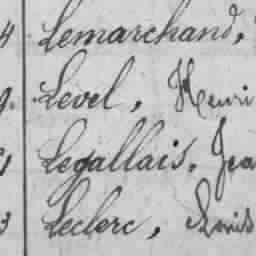 4 Lemarchand,
9. Level, Henri
Legallais, Jea
3 Leclerc, Louis